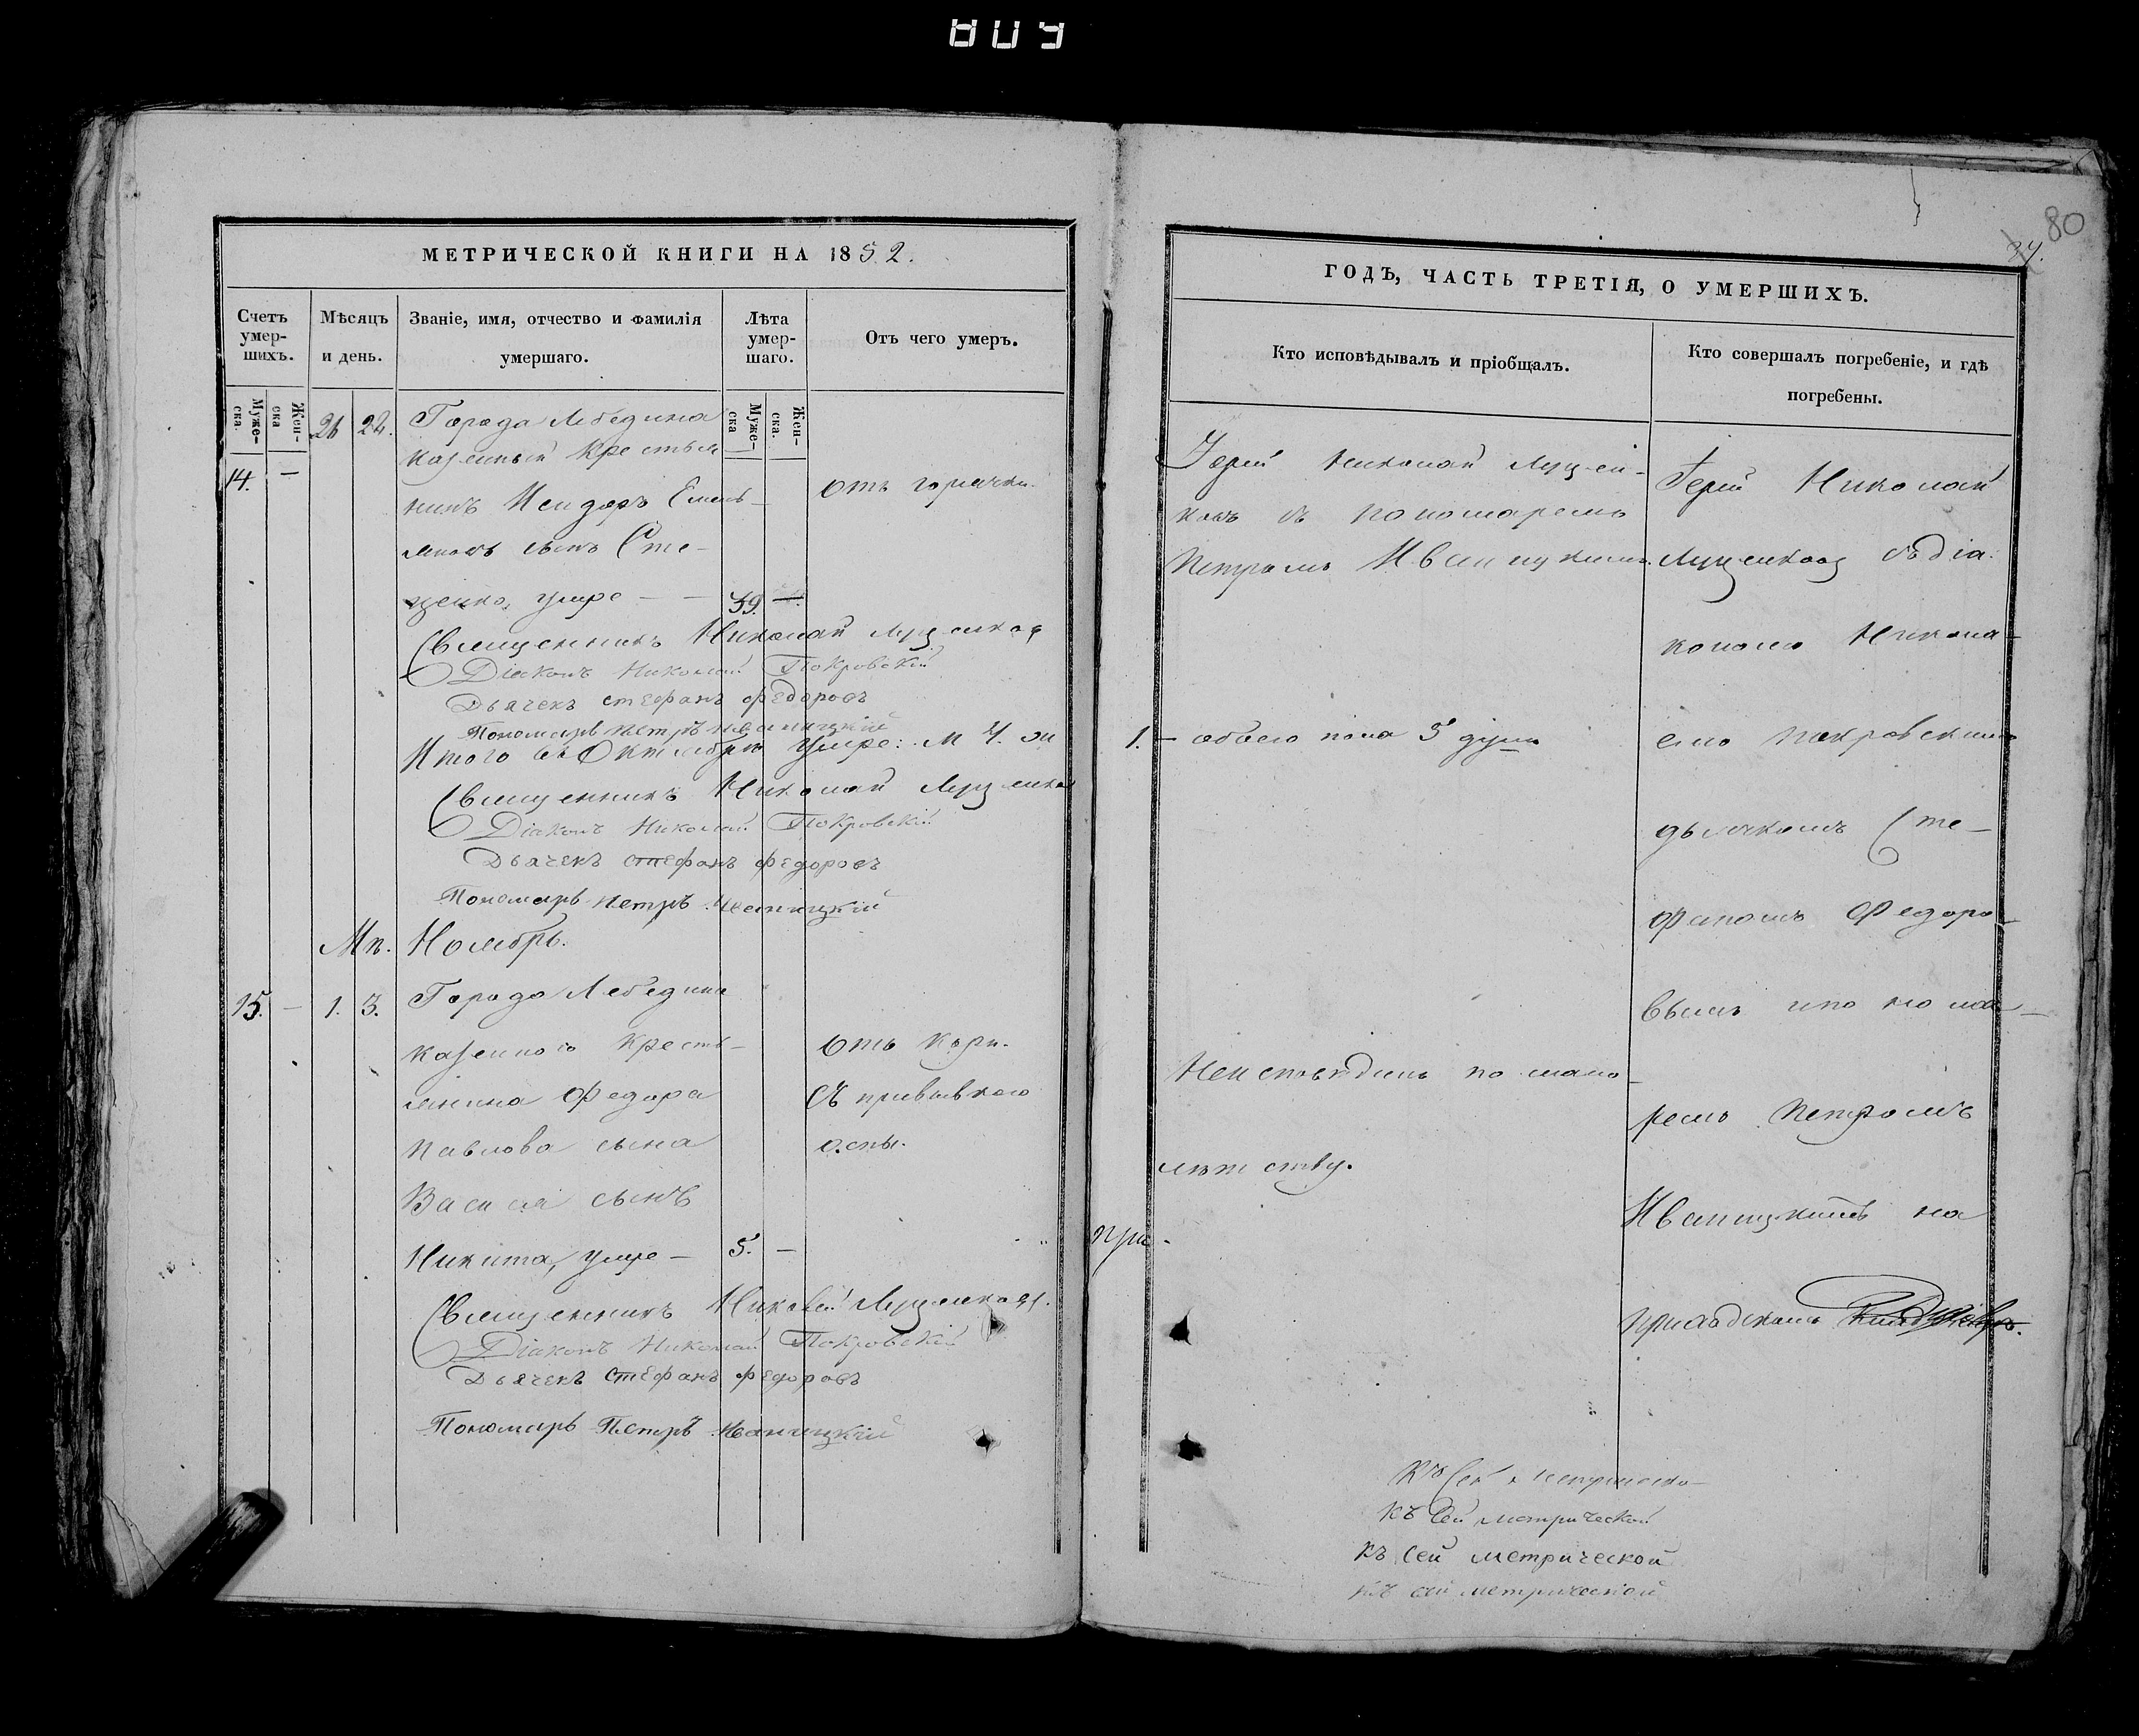 809
МЕТРИЧЕСКОЙ КНИГИ НА 1852.
Счетъ умер-шихъ.
Мѣсяцъ и день.
Званіе, имя, отчество и фамилія умершаго.
Лѣта умер-шаго.
Отъ чего умеръ.
Муже-ска.
Жен-ска
Муже-ска
Жен-ска.
14. —
24.
Города Лебедина
казенный крестья-
нинъ Исидоръ Емель-
яновъ сынъ Сте-
ценко, умре — — 59. —
отъ горячки.
Священникъ Николай
Діаконъ Николай Покровскій
Дьячекъ Стефанъ Федоровъ
Пономарь Петръ Иваницкій
Итого въ Октябрѣ умре: м 4. ж
Священникъ Николай
Діаконъ Николай Покровскій
Дьячекъ Стефанъ Федоровъ
Пономарь Петръ Иваницкій
Мц. Ноябрь.
15. — 1. 3.
Города Лебедина
казенного кресть-
янина Федора
Павлова сына
Василя сынъ
Никита, умре — 5. —
отъ кори.
съ прививкою
оспы.
Священникъ Николай
Діаконъ Николай Покровскій
Дьячекъ Стефанъ Федоровъ
Пономарь Петръ Иваницкій
80
ГОДЪ, ЧАСТЬ ТРЕТІЯ, О УМЕРШИХЪ.
Кто исповѣдывалъ и пріобщалъ.
Кто совершалъ погребеніе, и гдѣ погребены.
Іерей Николай
съ пономаремъ
Петромъ Иваницкимъ.
1. — обоего пола 5 душъ
Неисповѣданъ по мало-
лѣтству.
Іерей Николай
съ діа-
кономъ Никола-
емъ Покровскимъ
дьячкомъ Сте-
фаномъ Федоро-
вымъ и понома-
ремъ Петромъ
Иваницкимъ на
приходскомъ
при-
къ сей метрической
къ сей метрической
къ сей метрической